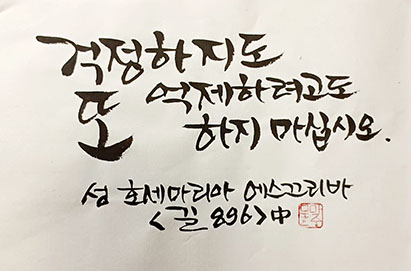 걱정하지도
또 억제하려고도
하지 마십시오.
성 호세마리아 에스끄리바
<길 896>中